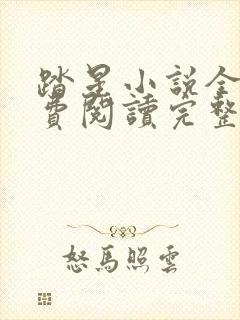 踏星小說全
費閱讀完整
怒馬照雲